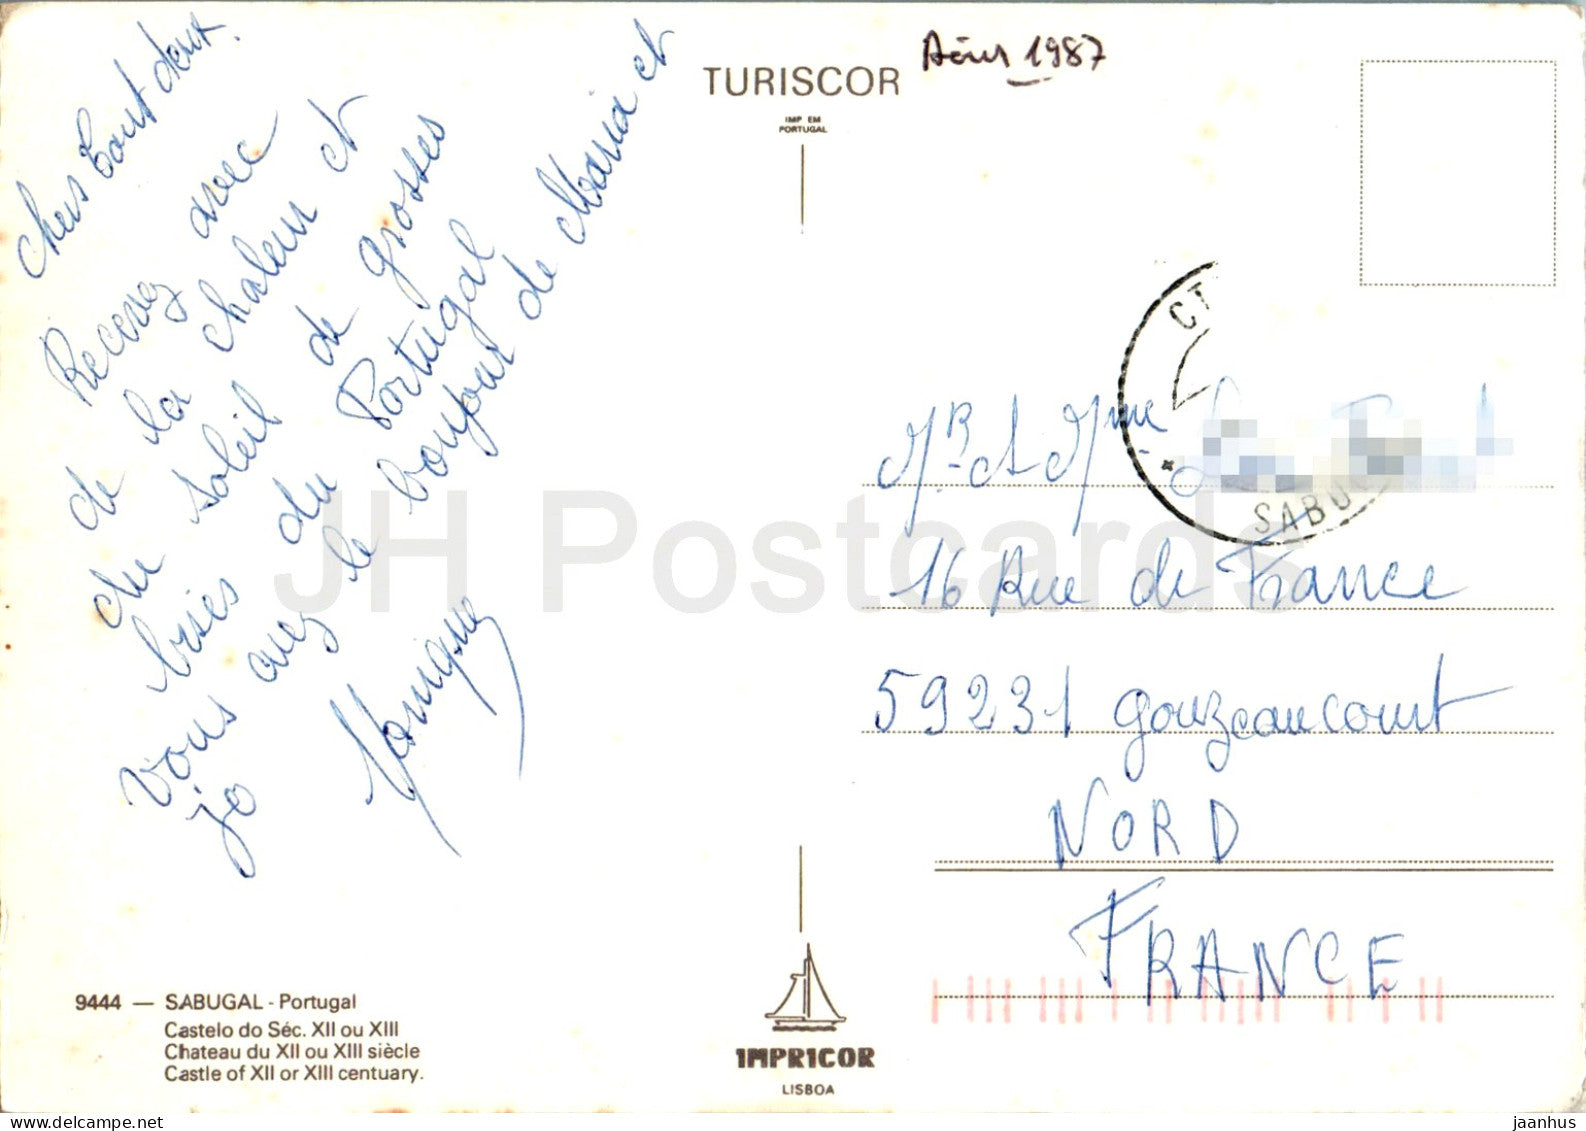 Chers tout deux.
Recevez avec
de la chaleur et
du soleil de grosses
bises du Portugal
vous avez le bonjour de Maria et
jo
Monique
TURISCOR
IMP EM
PORTUGAL
Août 1987
CT
SABUG
Mr et Mme
16 Rue de France
59231 gouzeaucourt
NORD
FRANCE
9444 — SABUGAL - Portugal
Castelo do Séc. XII ou XIII
Chateau du XII ou XIII siècle
Castle of XII or XIII centuary.
IMPRICOR
LISBOA
JH Postcards
jaanhus
www.delcampe.net